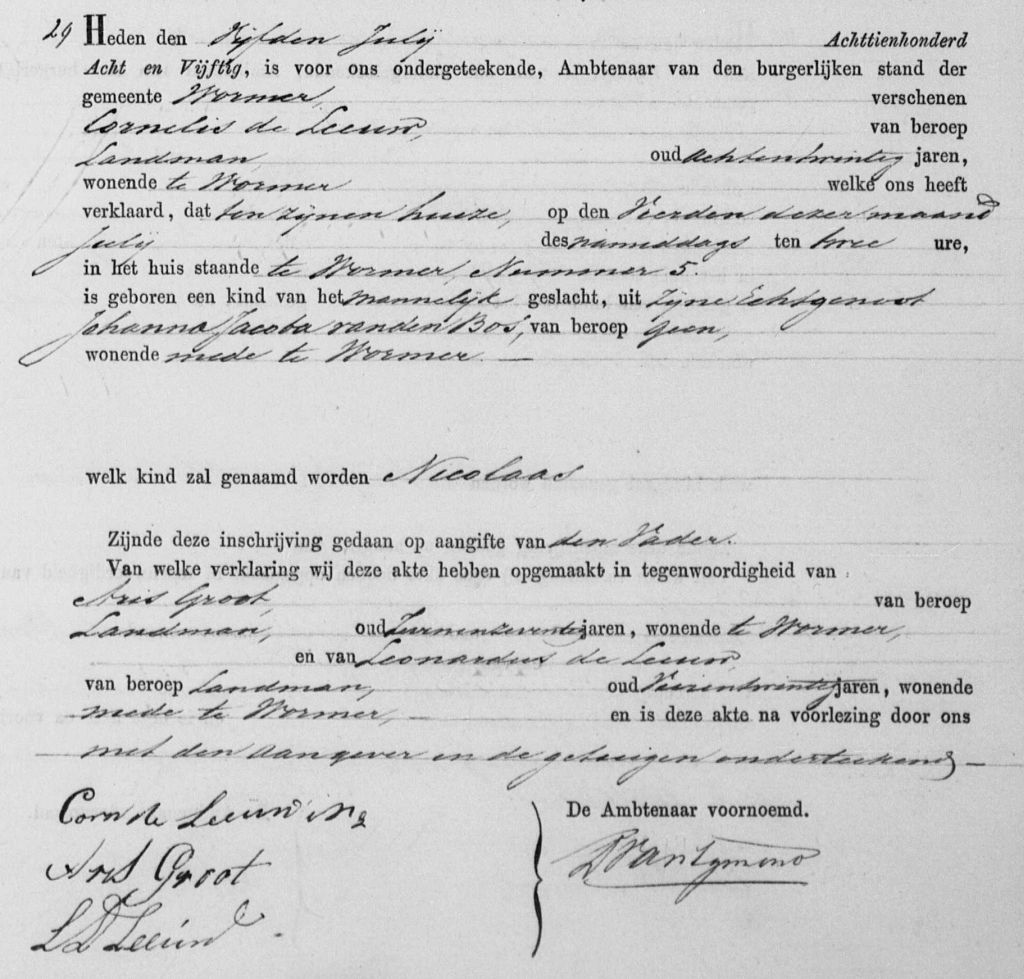 29 Heden den Vijfden Julij Achttienhonderd
Acht en Vijftig, is voor ons ondergeteekende, Ambtenaar van den burgerlijken stand der
gemeente Wormer, verschenen
Cornelis de Leeuw, van beroep
Landman, oud achtentwintig jaren,
wonende te Wormer welke ons heeft
verklaard, dat ten zijnen huize, op den Vierden dezer maand
Julij des namiddags ten twee ure,
in het huis staande te Wormer, Nummer 5.
is geboren een kind van het mannelijk geslacht, uit zijne Echtgenoot
Johanna Jacoba van den Bos, van beroep geen,
wonende mede te Wormer. —
welk kind zal genaamd worden Nicolaas
Zijnde deze inschrijving gedaan op aangifte van den Vader.
Van welke verklaring wij deze akte hebben opgemaakt in tegenwoordigheid van
Aris Groot, van beroep
Landman, oud jaren, wonende te Wormer,
en van Leonardus de Leeuw,
van beroep Landman, oud Vierentwintig jaren, wonende
mede te Wormer, — en is deze akte na voorlezing door ons
met den aangever en de getuigen onderteekend —
Corn de Leeuw
De Ambtenaar voornoemd.
Aris Groot
L D Leeuw